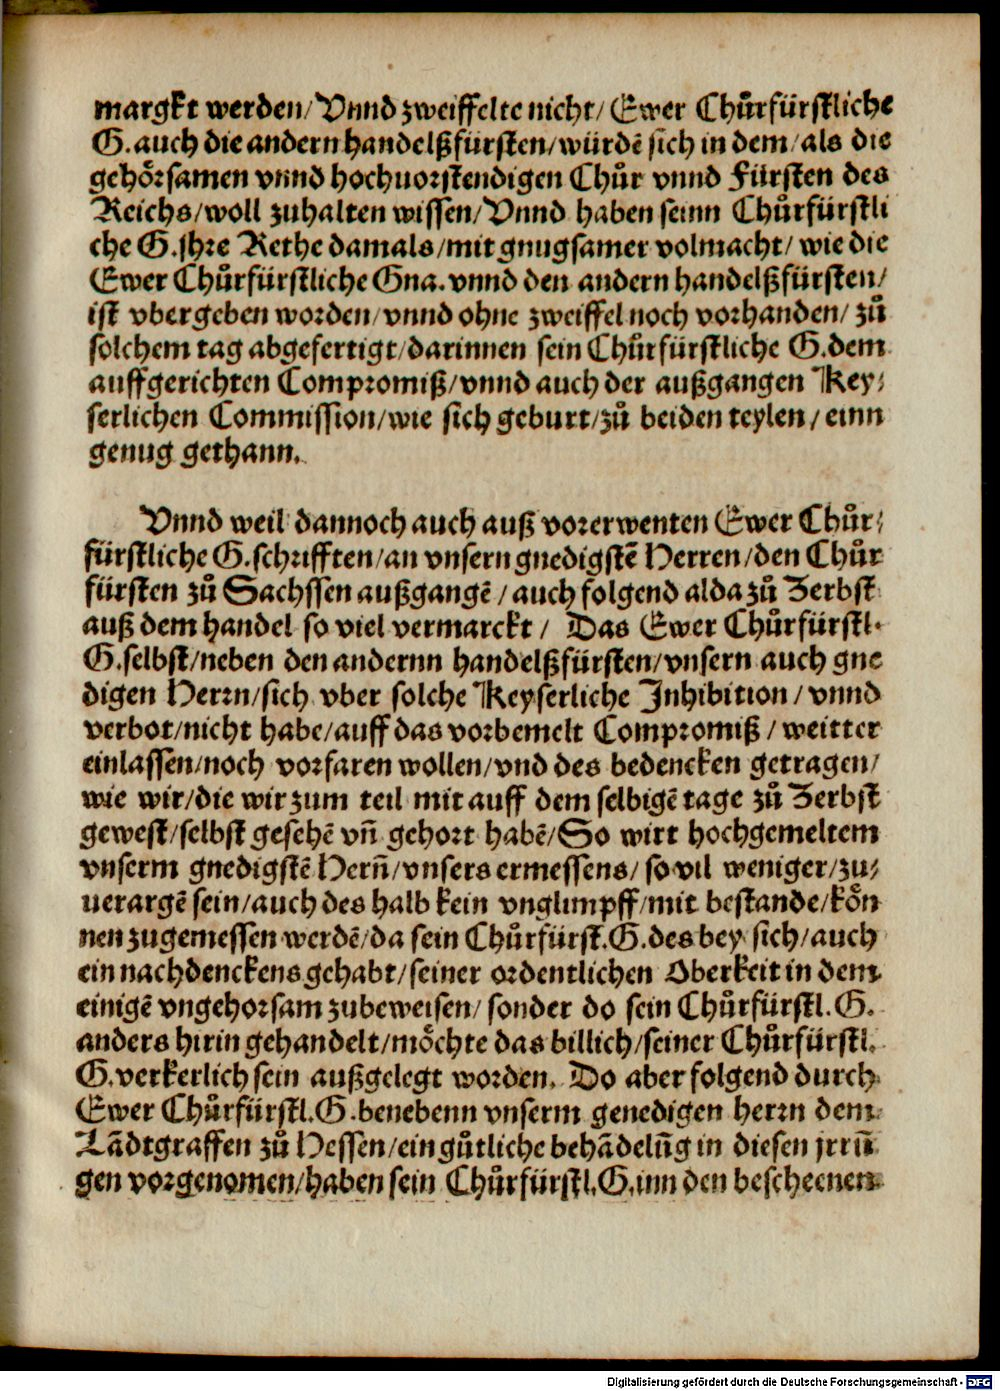 margkt werden/Vnnd zweiffelte nicht/Ewer Chůrfürstliche
G.auch die andern handelßfürsten/würdē sich in dem/als die
gehörsamen vnnd hochuorstendigen Chůr vnnd Fürsten des
Reichs/woll zuhalten wissen/Vnnd haben seinn Chůrfürstli
che G.jhre Rethe damals/mit gnugsamer volmacht/wie die
Ewer Chůrfürstliche Gna.vnnd den andern handelßfürsten/
ist vbergeben worden/vnnd ohne zweiffel noch vorhanden/zů
solchem tag abgefertigt/darinnen sein Chůrfürstliche G.dem
auffgerichten Compromiß/vnnd auch der außgangen Key/
serlichen Commission/wie sich geburt/zů beiden teylen/einn
genug gethann.
Vnnd weil dannoch auch auß vorerwenten Ewer Chůr/
fürstliche G.schrifften/an vnsern gnedigstē Herren/den Chůr
fürsten zů Sachssen außgangē/auch folgend alda zů Zerbst
auß dem handel so viel vermarckt/Das Ewer Chůrfürstl.
G.selbst/neben den andernn handelßfürsten/vnsern auch gne
digen Herrn/sich vber solche Keyserliche Inhibition/vnnd
verbot/nicht habe/auff das vorbemelt Compromiß/weitter
einlassen/noch vorfaren wollen/vnd des bedencken getragen/
wie wir/die wir zum teil mit auff dem selbigē tage zů Zerbst
gewest/selbst gesehē vn̄ gehort habē/So wirt hochgemeltem
vnserm gnedigstē Hern̄/vnsers ermessens/so vil weniger/zu/
uerargē sein/auch des halb kein vnglimpff/mit bestande/kön
nen zugemessen werdē/da sein Chůrfürst.G.des bey sich/auch
ein nachdenckens gehabt/seiner ordentlichen Oberkeit in dem
einigē vngehorsam zubeweisen/sonder do sein Chůrfürstl.G.
anders hirin gehandelt/möchte das billich/seiner Chůrfürstl.
G.verkerlich sein außgelegt worden. Do aber folgend durch
Ewer Chůrfürstl.G.benebenn vnserm genedigen herrn dem
Lādtgraffen zů Hessen/ein gůtliche behādelūg in diesen jrrū
gen vorgenomen/haben sein Chůrfürstl.G.inn den bescheenen
Digitalisierung gefördert durch die Deutsche Forschungsgemeinschaft - DFG